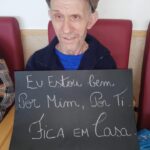 Eu Estou bem
Por Mim, Por Ti
Fica em Casa.